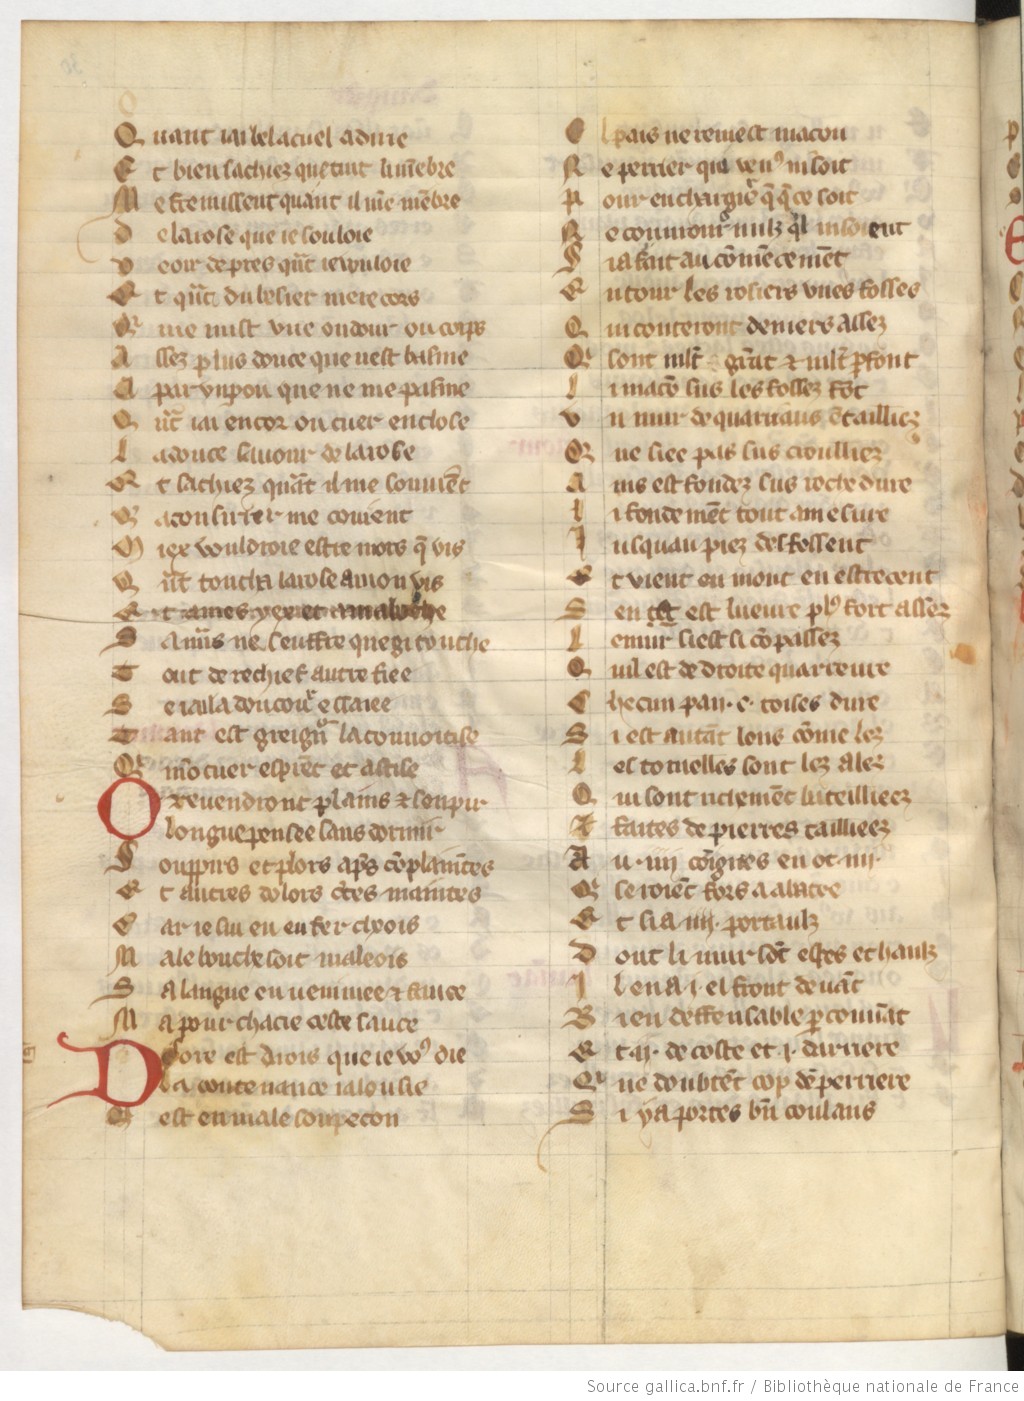 Quant iai belacuel a dire
Et bien sachiez que tint li membre
Me fremissent quant il me membre
De la rose que ie souloie
Veoir de pres qnt ie vouloie
Et qnt du besier me recors
Qui me mist vne oudour ou corps
Assez plus douce que nest basme
A par vn pou que ne me pasme
Qnt iai encor ou cuer enclose
La douce sauour de la rose
Et sachiez quāt il me souuiēt
Q a consirrer me couient
Miex vouldroie estre mors q̄ vis
Qnt toucha la rose a mon vis
Et a mes yex et a ma bouche
S amrs ne seuffre que gi touche
Tout de rechief autre fiee
Se iai la doucor essaiee
Tant est greignor la couuoitise
Qi mō cuer esprēt et atise
Or reuendront plains & soupir
Longue pensee sans dormir
Souppirs et plors aps cōplaintes
Et autres dolors ctes maintes
Car ie sui en enfer cheois
Male bouche soit maleois
Sa langue enuenimee & fause
Ma pourchacie ceste sauce
Desore est drois que ie vo9 die
La contenance ialousie
Q est en male soupecon
Ou pais ne remest macon
Ne perrier qui ven9 ni soit
Pour en chargier q̄ q̄ ce soit
Ne commour nulz ql ni soient
Si a fait au cōmencemēt
Entour les rosiers vnes fosses
Qui conteront deniers assez
Qi sont mlt grāt & mlt p̄font
Li macō sus les fossez fōt
Vn mur de quarriaus ētailliez
Qi ne siee pas sus croulliez
Ains est fondez sus roche dure
Li fondemēt tout a mesure
Iusquau piez des fosses ent
Et vient ou mont en estrecent
Sen est lueure pl9 fort assez
Le mur si est si cōpassez
Quil est de droite quarreure
Checun pan .c. toises dure
Si est autāt lons cōme lez
Les tornelles sont lez a lez
Qui sont richemēt bateilliees
Et faites de pierres tailliees
Au .iiij. cōignes en ot .iiij.
Qi seroiēt fors a abatre
Et si a .iiij. portaulz
Dont li mur sōt espes et haulz
Il en a .i. el front deuāt
Bien deffensable p couuāt
Et .ij. de coste et .i. darriere
Qi ne doubtēt cop de perriere
Si y a portes bn coulans
Source gallica.bnf.fr / Bibliothèque nationale de France